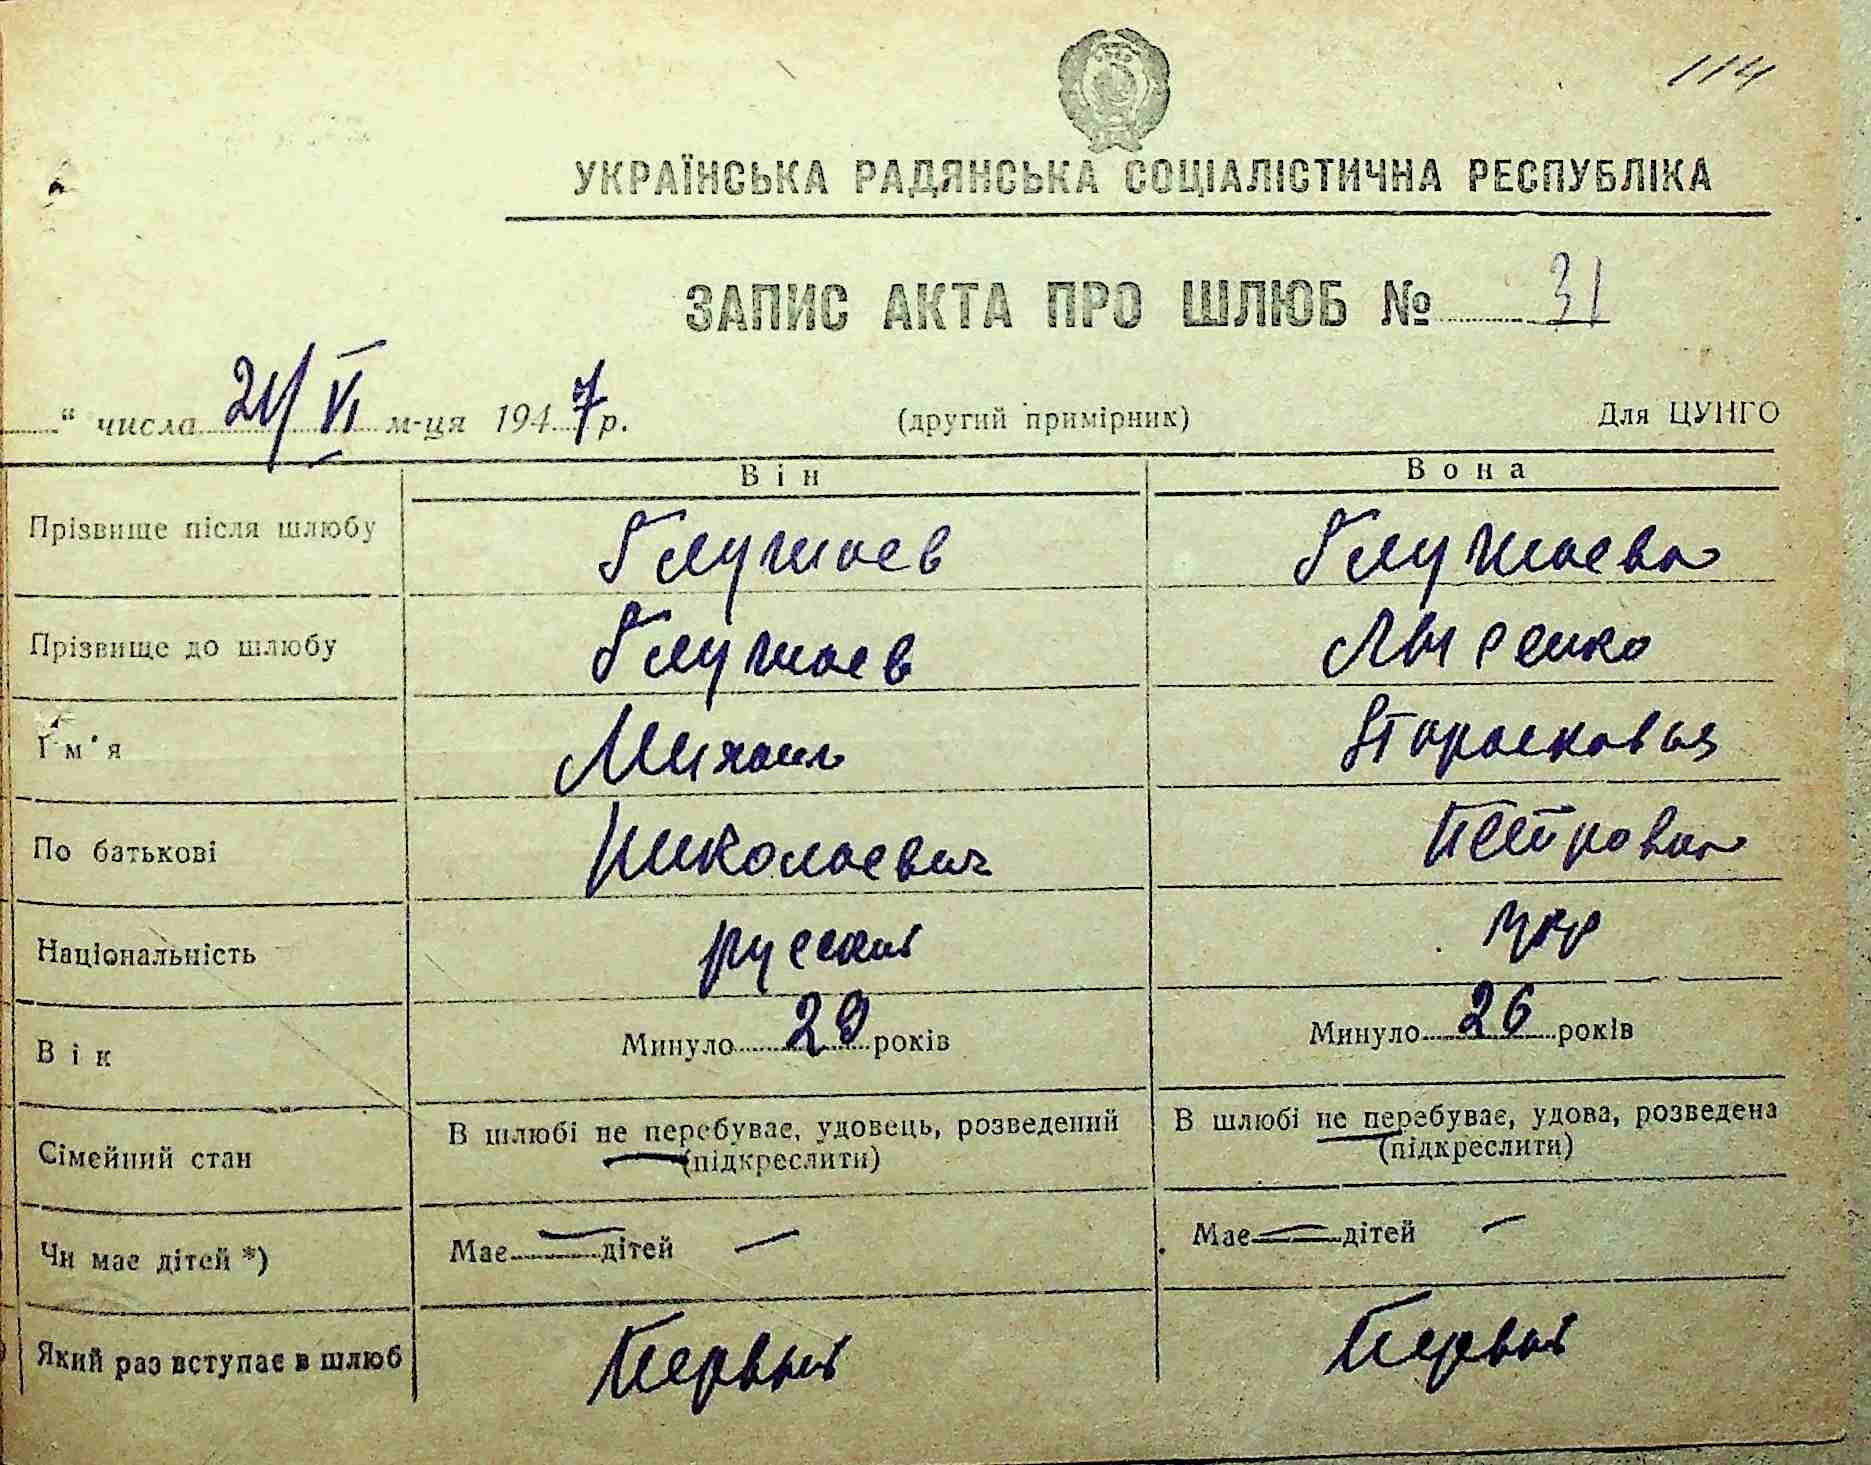 114
УКРАЇНСЬКА РАДЯНСЬКА СОЦІАЛІСТИЧНА РЕСПУБЛІКА
ЗАПИС АКТА ПРО ШЛЮБ № 31
“ числа 21/VI м-ця 1947 р. (другий примірник) Для ЦУНГО
Він Вона
Прізвище після шлюбу
Прізвище до шлюбу Лысенко
Ім'я Михаил Парасковья
По батькові Николаевич Петровна
Національність русский укр
Вік Минуло 29 років Минуло 26 років
Сімейний стан В шлюбі не перебуває, удовець, розведений (підкреслити) В шлюбі не перебуває, удова, розведена (підкреслити)
Чи має дітей *) Має — дітей — Має — дітей —
Який раз вступає в шлюб Первый Первый